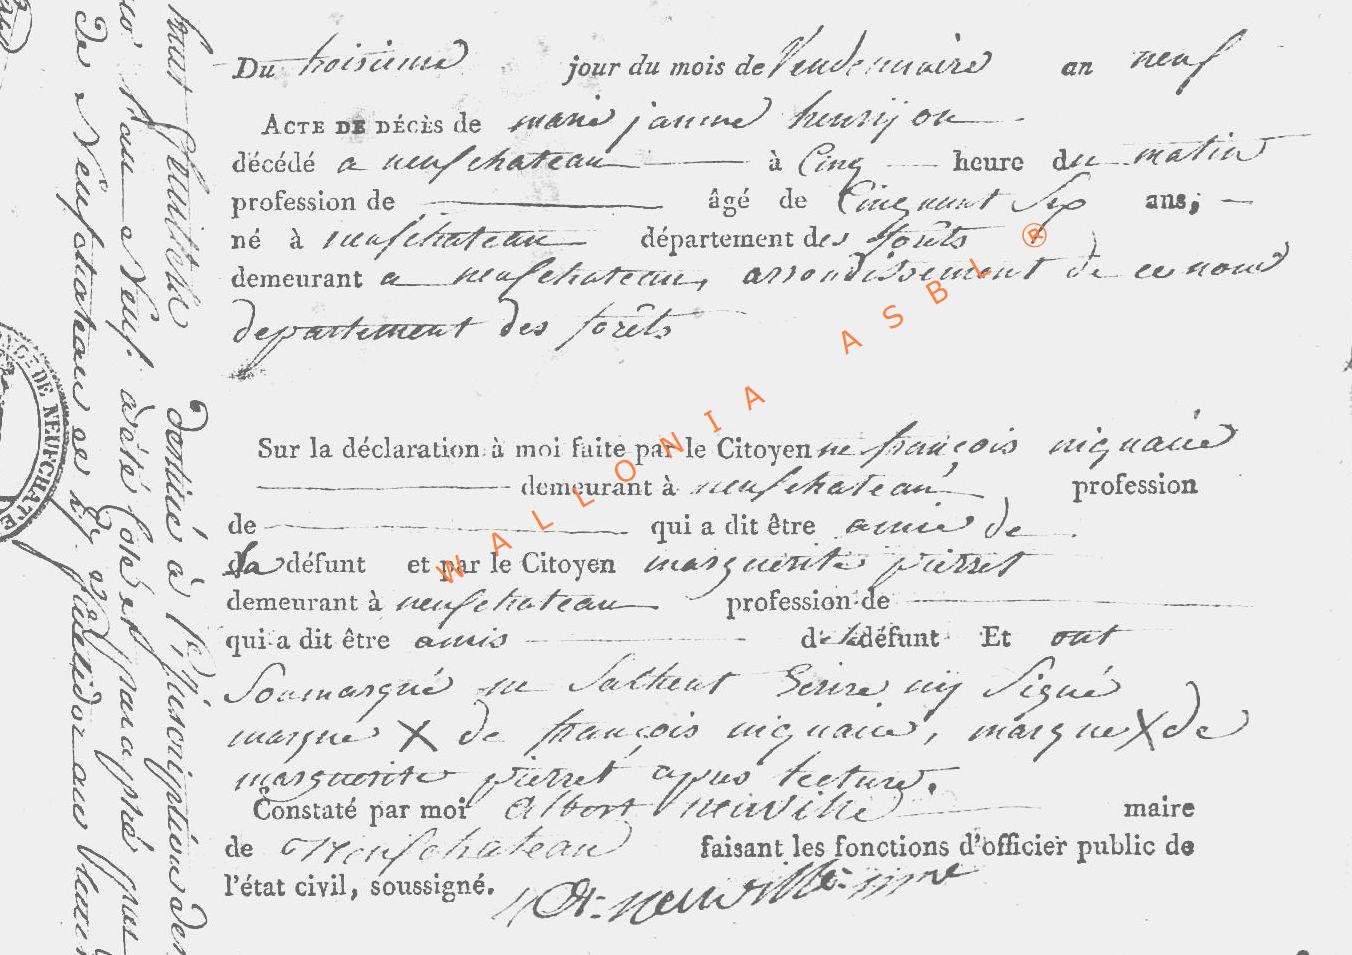 Du troisieme jour du mois de Vendemiaire an neuf
ACTE DE DÉCÈS de marie janne henrijon
décédé a neufchateau à Cinq heure du matin
profession de âgé de Cinquant Six ans;
né à neufchateau département des forêts
demeurant a neufchateau, arrondissement de ce nom
departement des forêts
Sur la déclaration à moi faite par le Citoyen ne françois niquaise
demeurant à neufchateau profession
de qui a dit être amie de
la défunt et par le Citoyen marguerite pierret
demeurant à neufchateau profession de
qui a dit être amis de la défunt Et ont
Soumarqué ne Sachent Ecrire nij Signé
marque X de françois niquaise, marque X de
marguerite pierret apres lecture.
Constaté par moi Albert neuville maire
de Neufchateau faisant les fonctions d'officier public de
l'état civil, soussigné.
A. neuville maire
huit feuillets destiné à l'Inscription des
pour l'an Neuf a été coté et paraphé par
de Neufchateau ce
DE NEUFCHATE
WALLONIA ASBL ®